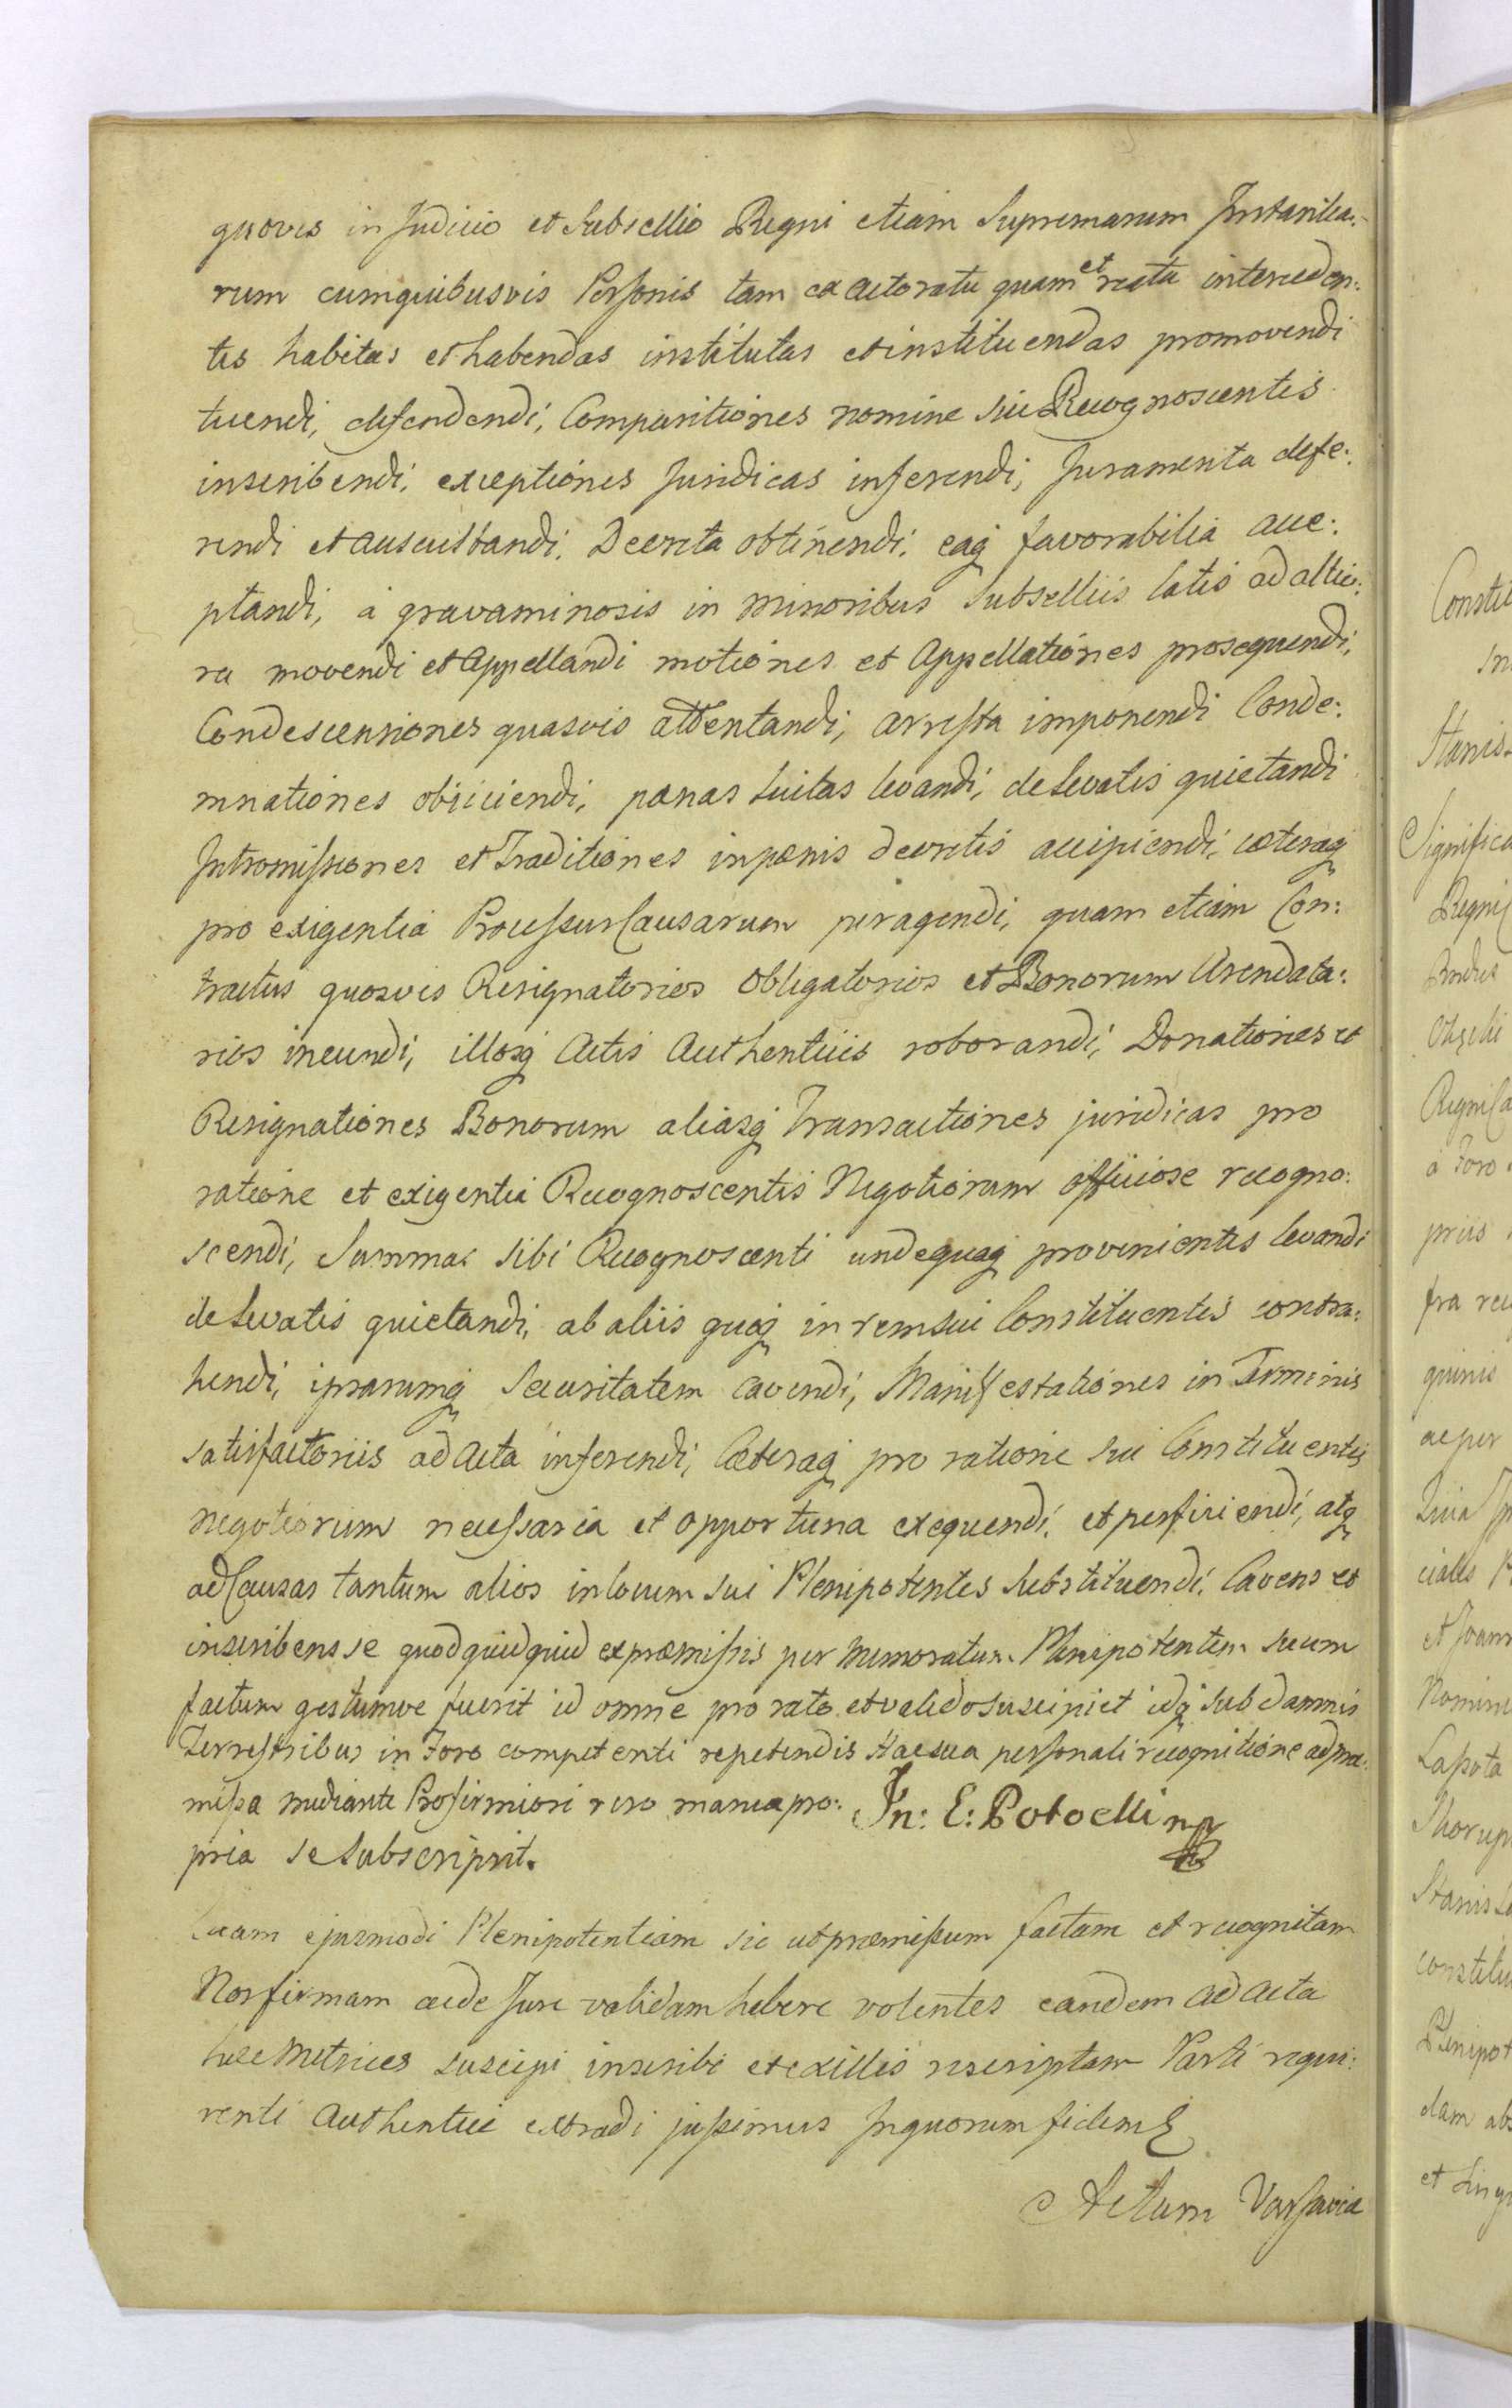 quovis in Judicio et Subsellio Regni etiam Supremarum Instantia:
rum cumquibusvis Personis tam ex actoratu quam et reatu interceden:
tes habitas et habendas institutas et instituendas promovendi
tuendi, defendendi, Comparitiones nomine sui Recognoscentis
inscribendi, exceptiones Juridicas inferendi, Juramenta defe:
rendi et auscultandi, Decreta obtinendi, eaq favorabilia acce:
ptandi, a gravaminosis in minoribus Subselliis latis ad altio:
ra movendi et Appellandi motiones et Appellationes prosequendi,
Condescensiones quasvis attentandi, arresta imponendi Conde:
mnationes obiiciendi, pœnas luitas levandi, de levatis quietandi
Intromissiones et Traditiones in pœnis decretis accipiendi, cæteraq
pro exigentia Processus Causarum peragendi, quam etiam Con:
tractus quosvis Resignatorios Obligatorios et Bonorum Arendato:
rios ineundi, illosq Actis Authenticis roborandi, Donationes et
Resignationes Bonorum aliasq Transactiones juridicas pro
ratione et exigentia Recognoscentis Negotiorum officiose recogno:
scendi, Summas sibi Recognoscenti undequaq provenientes levandi
de levatis quietandi, ab aliis quoq in rem sui Constituentis contra:
hendi, ipsarumq Securitatem cavendi, Manifestationes in Terminis
satisfactoriis ad Acta inferendi, Cæteraq pro ratione sui Constituentis
negotiorum necessaria et opportuna exequendi, et perficiendi, atq
ad Causas tantum alios in locum sui Plenipotentes substituendi, Cavens et
inscribens se quod quidquid ex præmissis per memoratum Plenipotentem suum
factum gestumve fuerit id omne pro rato et valido suscipiet idq sub damnis
Terrestribus in Foro competenti repetendis Hac sua personali recognitione ad præ:
missa mediante Pro firmiori vero manu pro: In: E: Potocki mp
pria se subscripsit.
Quam ejusmodi Plenipotentiam sic ut præmissum factam et recognitam
Nos firmam ac de Jure validam habere volentes eandem ad Acta
hæc Metrices suscipi inscribi et ex illis rescriptam Parti requi:
renti Authentice extradi jussimus In quorum fidem
Actum Varsaviæ